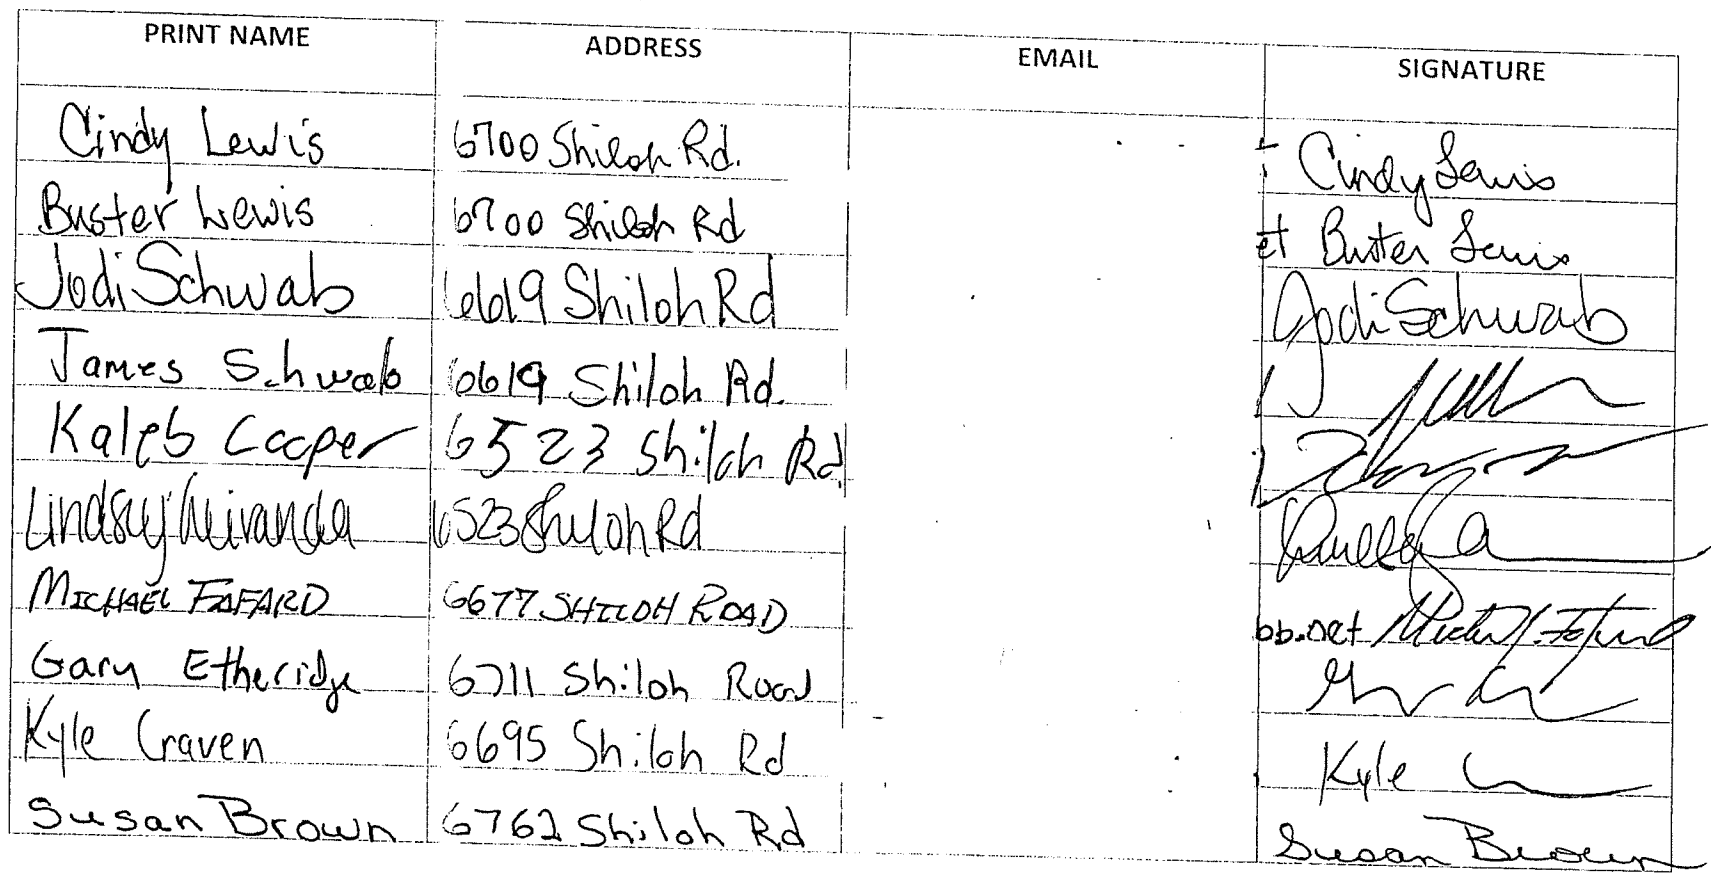 PRINT NAME ADDRESS EMAIL SIGNATURE
Cindy Lewis 6700 Shiloh Rd. Cindy Lewis
Buster Lewis 6700 Shiloh Rd et Buster Lewis
Jodi Schwab 6619 Shiloh Rd Jodi Schwab
James Schwab 6619 Shiloh Rd.
Kaleb Cooper 6523 Shiloh Rd
Lindsay Miranda 6523 Shiloh Rd
MICHAEL FAFARD 6677 SHILOH ROAD bb.net
Gary Etheridge 6711 Shiloh Road
Kyle Craven 6695 Shiloh Rd Kyle
Susan Brown 6762 Shiloh Rd Susan Brown